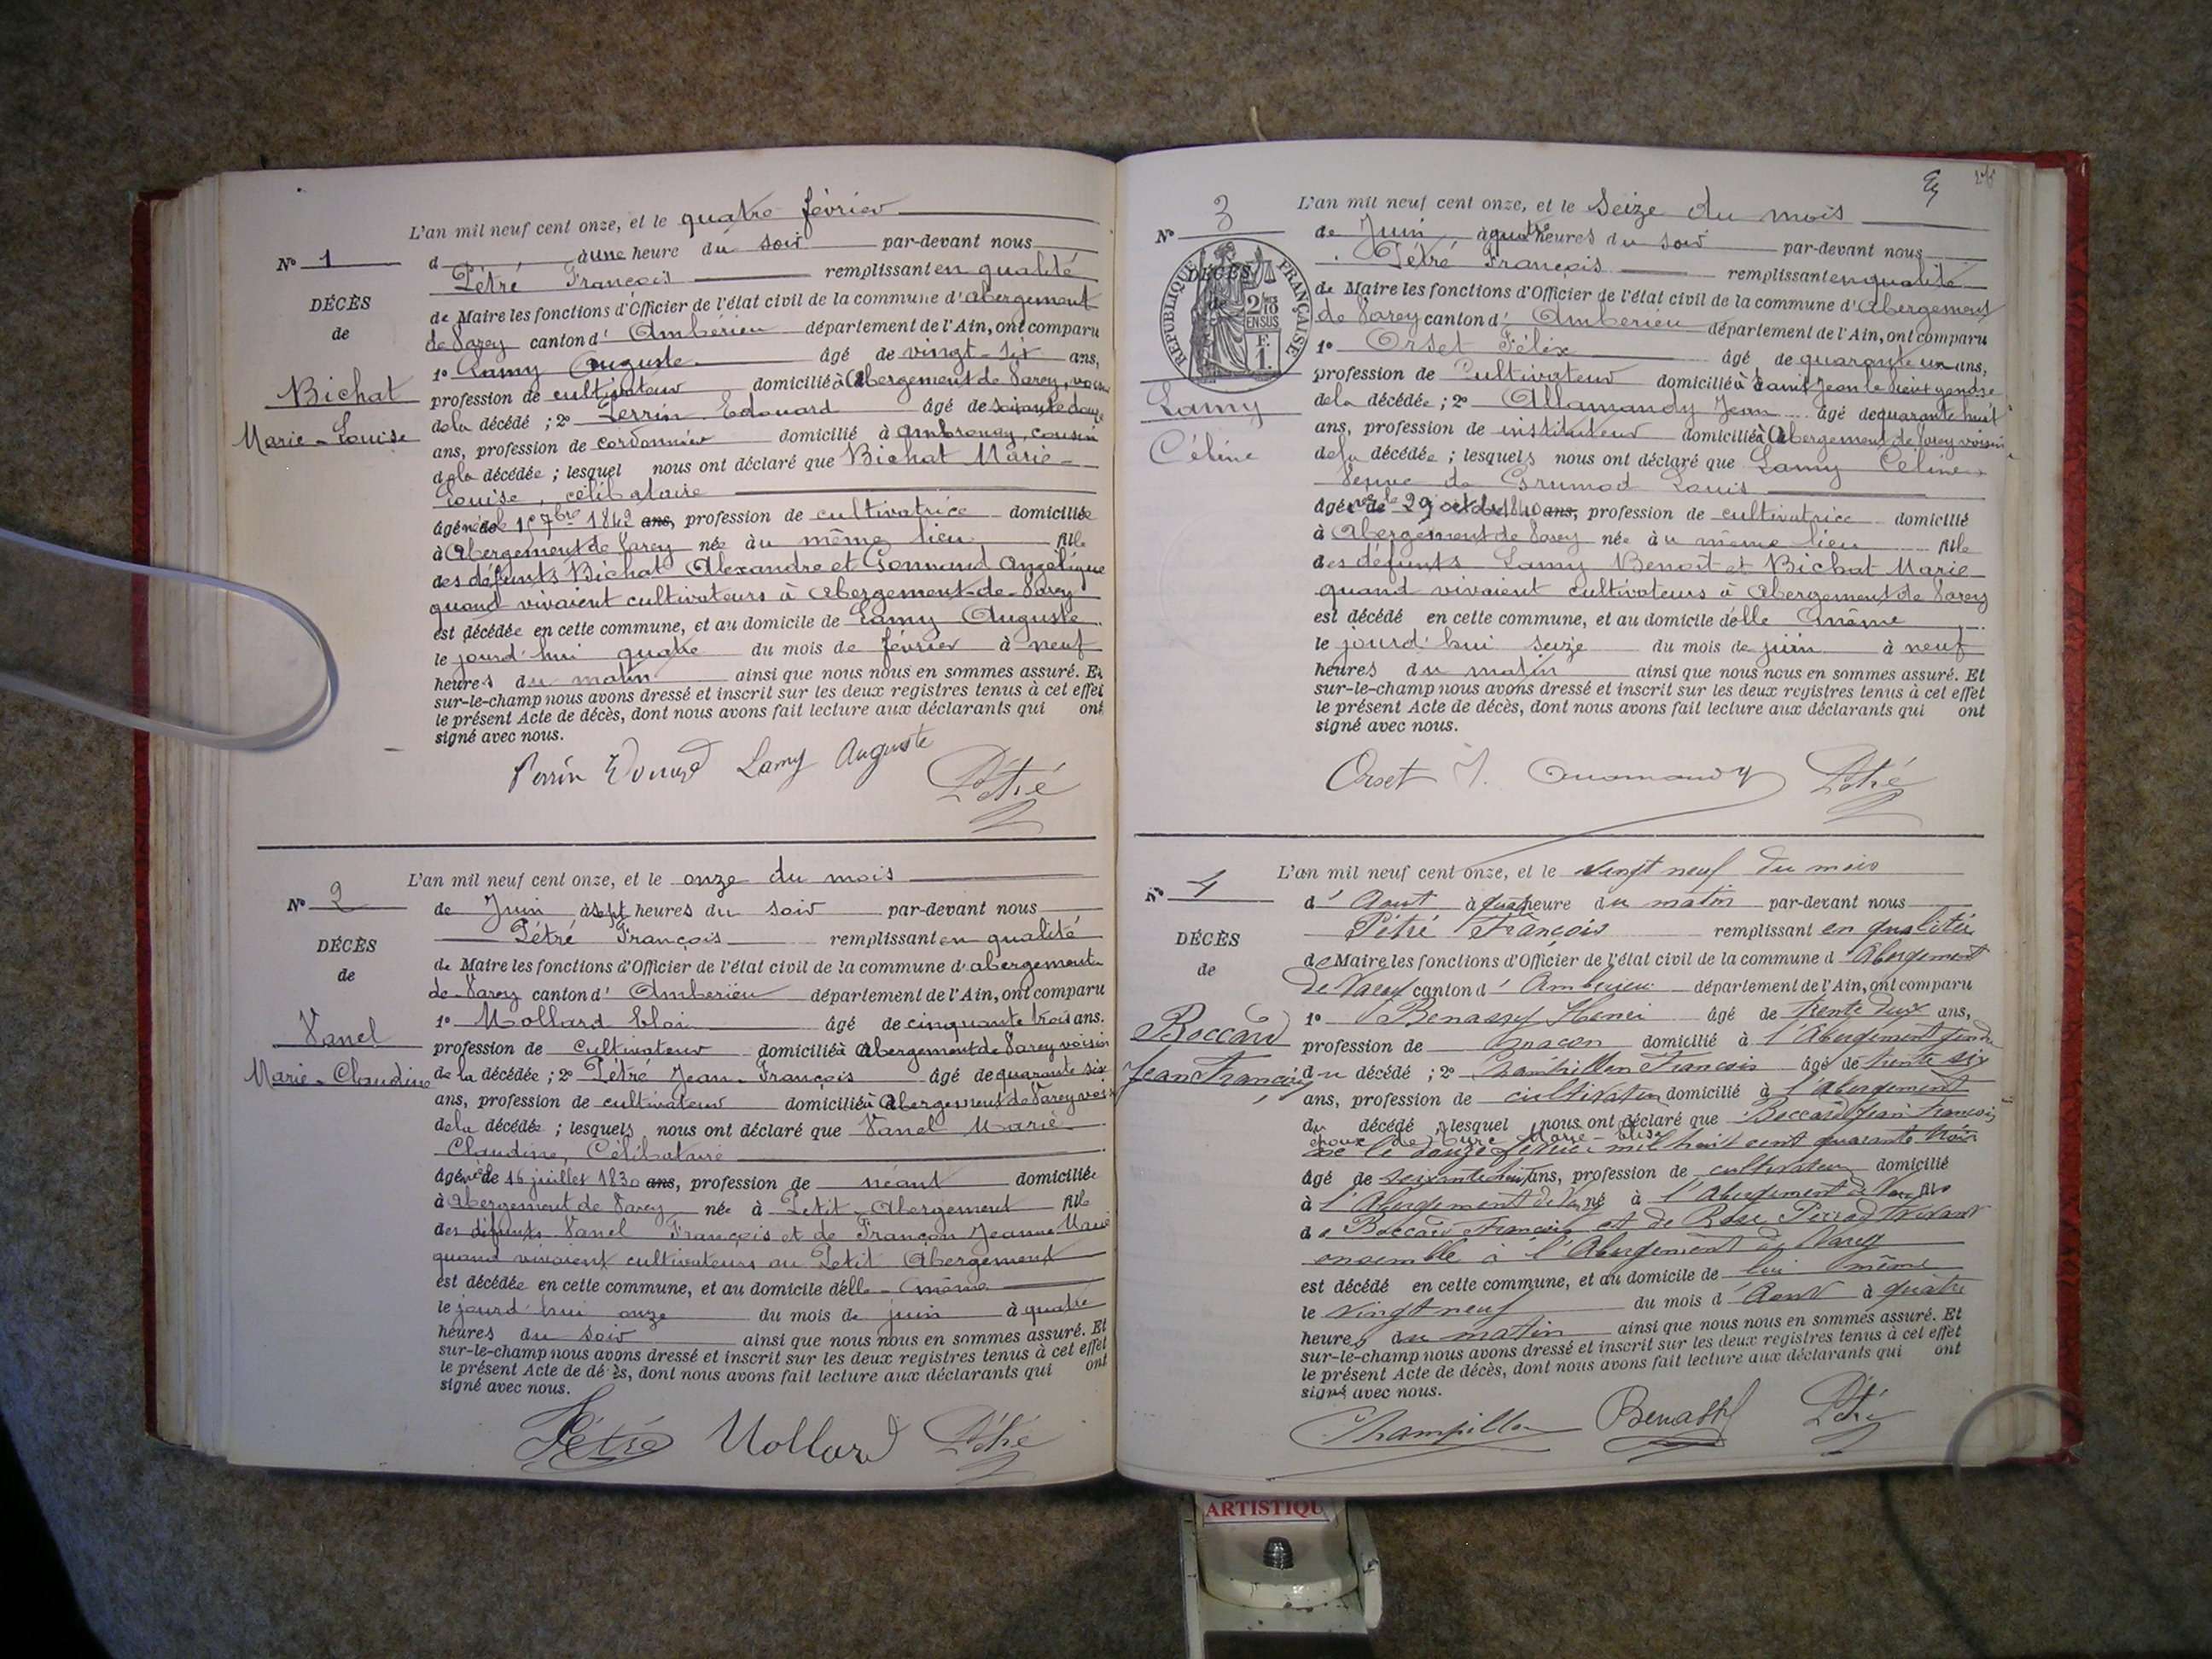 L'an mil neuf cent onze, et le quatre février
N° 1
d à une heure du soir par-devant nous
Pétré François remplissant en qualité
DÉCÈS
de Maire les fonctions d'Officier de l'état civil de la commune d'Abergement
de
de Varey canton d'Ambérieu département de l'Ain, ont comparu
1° Lamy Auguste âgé de vingt-six ans,
Bichat
profession de cultivateur domicilié à Abergement de Varey, voisin
Marie-Louise
de la décédé ; 2° Perrin Edouard âgé de soixante douze
ans, profession de cordonnier domicilié à Ambronay, cousin
de la décédée ; lesquel nous ont déclaré que Bichat Marie-
Louise, célibataire
âgé née le 1er 7bre 1842 ans, profession de cultivatrice domiciliée
à Abergement de Varey née à au même lieu fille
des défunts Bichat Alexandre et Gonnand Angélique
quand vivaient cultivateurs à Abergement-de-Varey
est décédée en cette commune, et au domicile de Lamy Auguste
le jourd'hui quatre du mois de février à neuf
heures du matin ainsi que nous nous en sommes assuré. Et
sur-le-champ nous avons dressé et inscrit sur les deux registres tenus à cet effet
le présent Acte de décès, dont nous avons fait lecture aux déclarants qui ont
signé avec nous.
Perrin Edouard Lamy Auguste Pétré
L'an mil neuf cent onze, et le onze du mois
N° 2
de Juin à sept heures du soir par-devant nous
Pétré François remplissant en qualité
DÉCÈS
de Maire les fonctions d'Officier de l'état civil de la commune d'abergement
de
de-Varey canton d'Ambérieu département de l'Ain, ont comparu
1° Mollard âgé de cinquante trois ans.
Vanel
profession de Cultivateur domicilié à Abergement de Varey voisin
Marie-Claudine
de la décédée ; 2° Pétré Jean-François âgé de quarante six
ans, profession de cultivateur domicilié à Abergement de Varey voisin
de la décédée ; lesquels nous ont déclaré que Vanel Marie
Claudine, Célibataire
âgé née le 16 juillet 1830 ans, profession de néant domiciliée
à Abergement de Varey née à Petit-Abergement fille
des défunts Vanel François et de Françon Jeanne Marie
quand vivaient cultivateurs au Petit Abergement
est décédée en cette commune, et au domicile d'elle-même
le jourd'hui onze du mois de juin à quatre
heures du soir ainsi que nous nous en sommes assuré. Et
sur-le-champ nous avons dressé et inscrit sur les deux registres tenus à cet effet
le présent Acte de décès, dont nous avons fait lecture aux déclarants qui ont
signé avec nous.
Pétré Mollard Pétré
L'an mil neuf cent onze, et le Seize du mois
N° 3
de Juin à quatre heures du soir par-devant nous
Pétré François remplissant en qualité
DÉCÈS
RÉPUBLIQUE FRANÇAISE
2/10 EN SUS
F. 1.
de Maire les fonctions d'Officier de l'état civil de la commune d'Abergement
de Varey canton d'Ambérieu département de l'Ain, ont comparu
1° Orset Félix âgé de quarante un ans,
profession de Cultivateur domicilié à Saint Jean le Vieux gendre
Lamy
de la décédée ; 2° Allamandy Jean âgé de quarante huit
ans, profession de instituteur domicilié à Abergement de Varey voisin
Céline
de la décédée ; lesquels nous ont déclaré que Lamy Céline
Veuve de Grumod Louis
âgé née le 29 octobre 1840 ans, profession de cultivatrice domicilié
à Abergement de Varey née à au même lieu fille
des défunts Lamy Benoît et Bichat Marie
quand vivaient cultivateurs à Abergement de Varey
est décédé en cette commune, et au domicile d'elle même
le jourd'hui seize du mois de juin à neuf
heures du matin ainsi que nous nous en sommes assuré. Et
sur-le-champ nous avons dressé et inscrit sur les deux registres tenus à cet effet
le présent Acte de décès, dont nous avons fait lecture aux déclarants qui ont
signé avec nous.
Orset F. Allamandy Pétré
L'an mil neuf cent onze, et le vingt neuf du mois
N° 4
d'Aout à quatre heure du matin par-devant nous
Pétré François remplissant en qualité
DÉCÈS
de Maire les fonctions d'Officier de l'état civil de la commune d'Abergement
de
de Varey canton d'Amberieu département de l'Ain, ont comparu
1° Benassy Henri âgé de trente deux ans,
Boccard
profession de maçon domicilié à l'Abergement gendre
Jean François
du décédé ; 2° Champillon François âgé de trente six
ans, profession de cultivateur domicilié à l'abergement
du décédé lesquel nous ont déclaré que Boccard Jean François
époux de Marie-Elise
né le douze février mil huit cent quarante trois
âgé de soixante huit ans, profession de cultivateur domicilié
à l'Abergement de Varey né à l'Abergement de Varey fils
de Boccard François et de Rose Perrod vivant
ensemble à l'Abergement de Varey
est décédé en cette commune, et au domicile de lui même
le vingt neuf du mois d'Aout à quatre
heures du matin ainsi que nous nous en sommes assuré. Et
sur-le-champ nous avons dressé et inscrit sur les deux registres tenus à cet effet
le présent Acte de décès, dont nous avons fait lecture aux déclarants qui ont
signé avec nous.
Champillon Benassy Pétré
ARTISTIQU